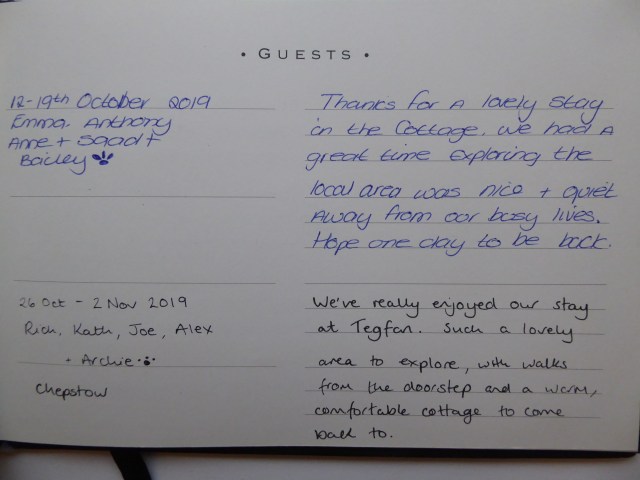 • GUESTS •
12-19th October 2019
Emma, Anthony
Anne + Saad +
Bailey
Thanks for a lovely stay
in the Cottage. We had a
great time exploring the
local area was nice + quiet
away from our busy lives.
Hope one day to be back.
26 Oct - 2 Nov 2019
Rich, Kath, Joe, Alex
+ Archie
Chepstow
We've really enjoyed our stay
at Tegfan. Such a lovely
area to explore, with walks
from the doorstep and a warm,
comfortable cottage to come
back to.